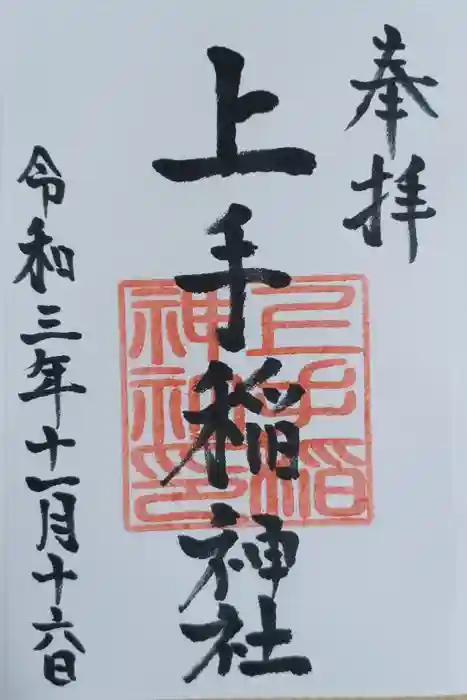 奉拝
上手稲神社
上手稲
神社印
令和三年十一月十六日